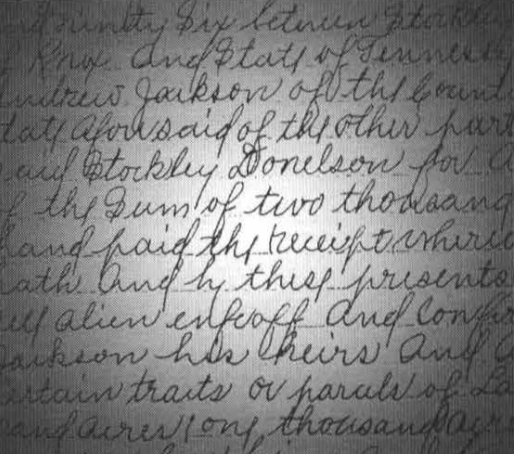 nd ninety Six between Stockley
Knox and State of Tennessee
Andrew Jackson of the Count
tate aforesaid of the other part
aid Stockley Donelson for a
f the Sum of two thousand
hand paid the receipt where
hath and by these presents
sell alien enfeoff and Confir
Jackson his heirs and a
ertain tracts or parcels of La
sand acres one thousand acre